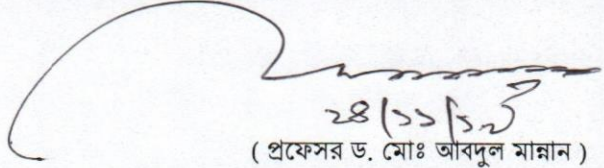 ২৪/১১/১৯
( প্রফেসর ড. মোঃ আবদুল মান্নান )